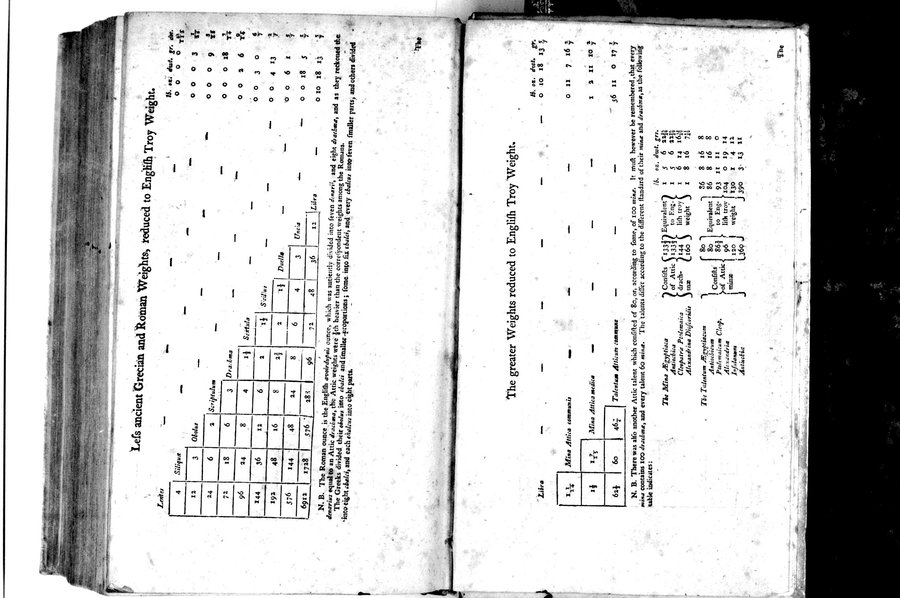 Leſs ancient Grecian and Roman Weights, reduced to Engliſh Troy Weight.
lb. oz. dwt. gr. dec.
Lentes — 0 0 0 0
4 Siliquæ — 0 0 0 3
12 3 Obolus — 0 0 0 9
24 6 2 Scriptulum — 0 0 0 18
72 18 6 3 Drachma — 0 0 2 6
96 24 8 4 1⅓ Sextula — 0 0 3 0 6/7
144 36 12 6 2 1½ Sicilius — 0 0 4 13 2/7
192 48 16 8 2⅔ 2 1⅓ Duella — 0 0 6 1 5/7
576 144 48 24 8 6 4 3 Uncia — 0 0 18 5 1/7
6912 1728 576 288 96 72 48 36 12 Libra — 0 10 18 13 5/7
N. B. The Roman ounce is the Engliſh avoirdupois ounce, which was anciently divided into ſeven denarii, and eight drachmæ, and as they reckoned the
denarius equal to an Attic drachma, the Attic weights were ⅛th heavier than the correſpondent weights among the Romans.
The Greeks divided their obolus into chalci and ſmaller proportions; ſome into ſix chalci, and every chalcus into ſeven ſmaller parts, and others divided
into eight chalci, and each chalcus into eight parts.
The
The greater Weights reduced to Engliſh Troy Weight.
lb. oz. dwt. gr.
Libra — 0 10 18 13 5/7
Mina Attica communis — 0 11 7 16 2/7
Mina Attica medica — 1 2 11 10 2/7
62½ 60 46⅞ Talentum Atticum commune — 56 11 0 17 1/7
N. B. There was alſo another Attic talent which conſiſted of 80, or, according to ſome, of 100 minæ. It muſt however be remembered, that every
mina contains 100 drachmæ, and every talent 60 minæ. The talents differ according to the different ſtandard of their minæ and drachmæ, as the following
table indicates:
lb. oz. dwt. grs.
The Mina Ægyptiaca Conſiſts 133⅓ Equivalent 1 5 6
Antiochica of Attic 133⅓ to Eng- 1 5 6
Cleopatræ Ptolemaica drach- 144 liſh troy 1 6 14
Alexandrina Dioſcoridis mæ 160 weight 1 8 16
The Talentum Ægyptiacum 80 86 8 16 8
Antiochicum Conſiſts 80 Equivalent 86 8 16 8
Ptolemaicum Cleop. of Attic 86⅖ to Eng- 93 11 11 0
Alexandriæ minæ 96 liſh troy 104 0 19 14
Inſulanum 120 weight 130 1 4 12
Antiochiæ 360 390 3 13 11
The